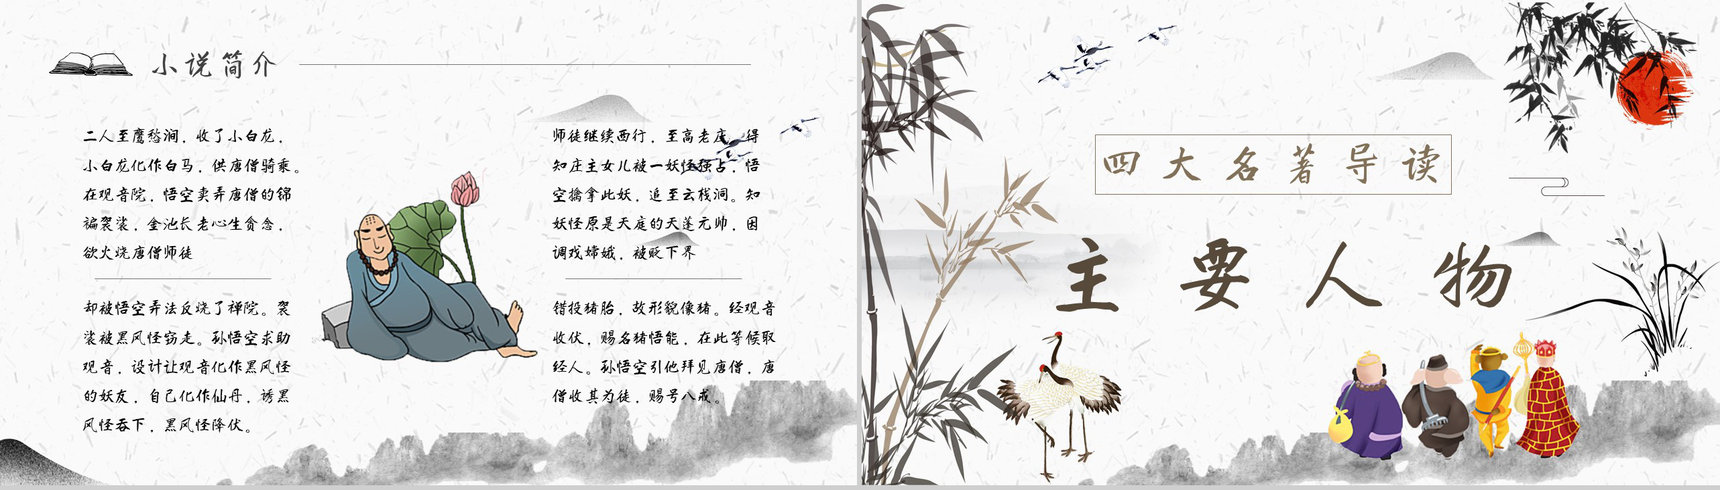 小说简介
二人至鹰愁涧，收了小白龙，
小白龙化作白马，供唐僧骑乘。
在观音院，悟空卖弄唐僧的锦
襕袈裟，金池长老心生贪念，
欲火烧唐僧师徒
却被悟空弄法反烧了禅院。袈
裟被黑风怪窃走。孙悟空求助
观音，设计让观音化作黑风怪
的妖友，自己化作仙丹，诱黑
风怪吞下，黑风怪降伏。
师徒继续西行，至高老庄，得
知庄主女儿被一妖怪强占，悟
空擒拿此妖，追至云栈洞。知
妖怪原是天庭的天蓬元帅，因
调戏嫦娥，被贬下界
错投猪胎，故形貌像猪。经观音
收伏，赐名猪悟能，在此等候取
经人。孙悟空引他拜见唐僧，唐
僧收其为徒，赐号八戒。
四大名著导读
主要人物